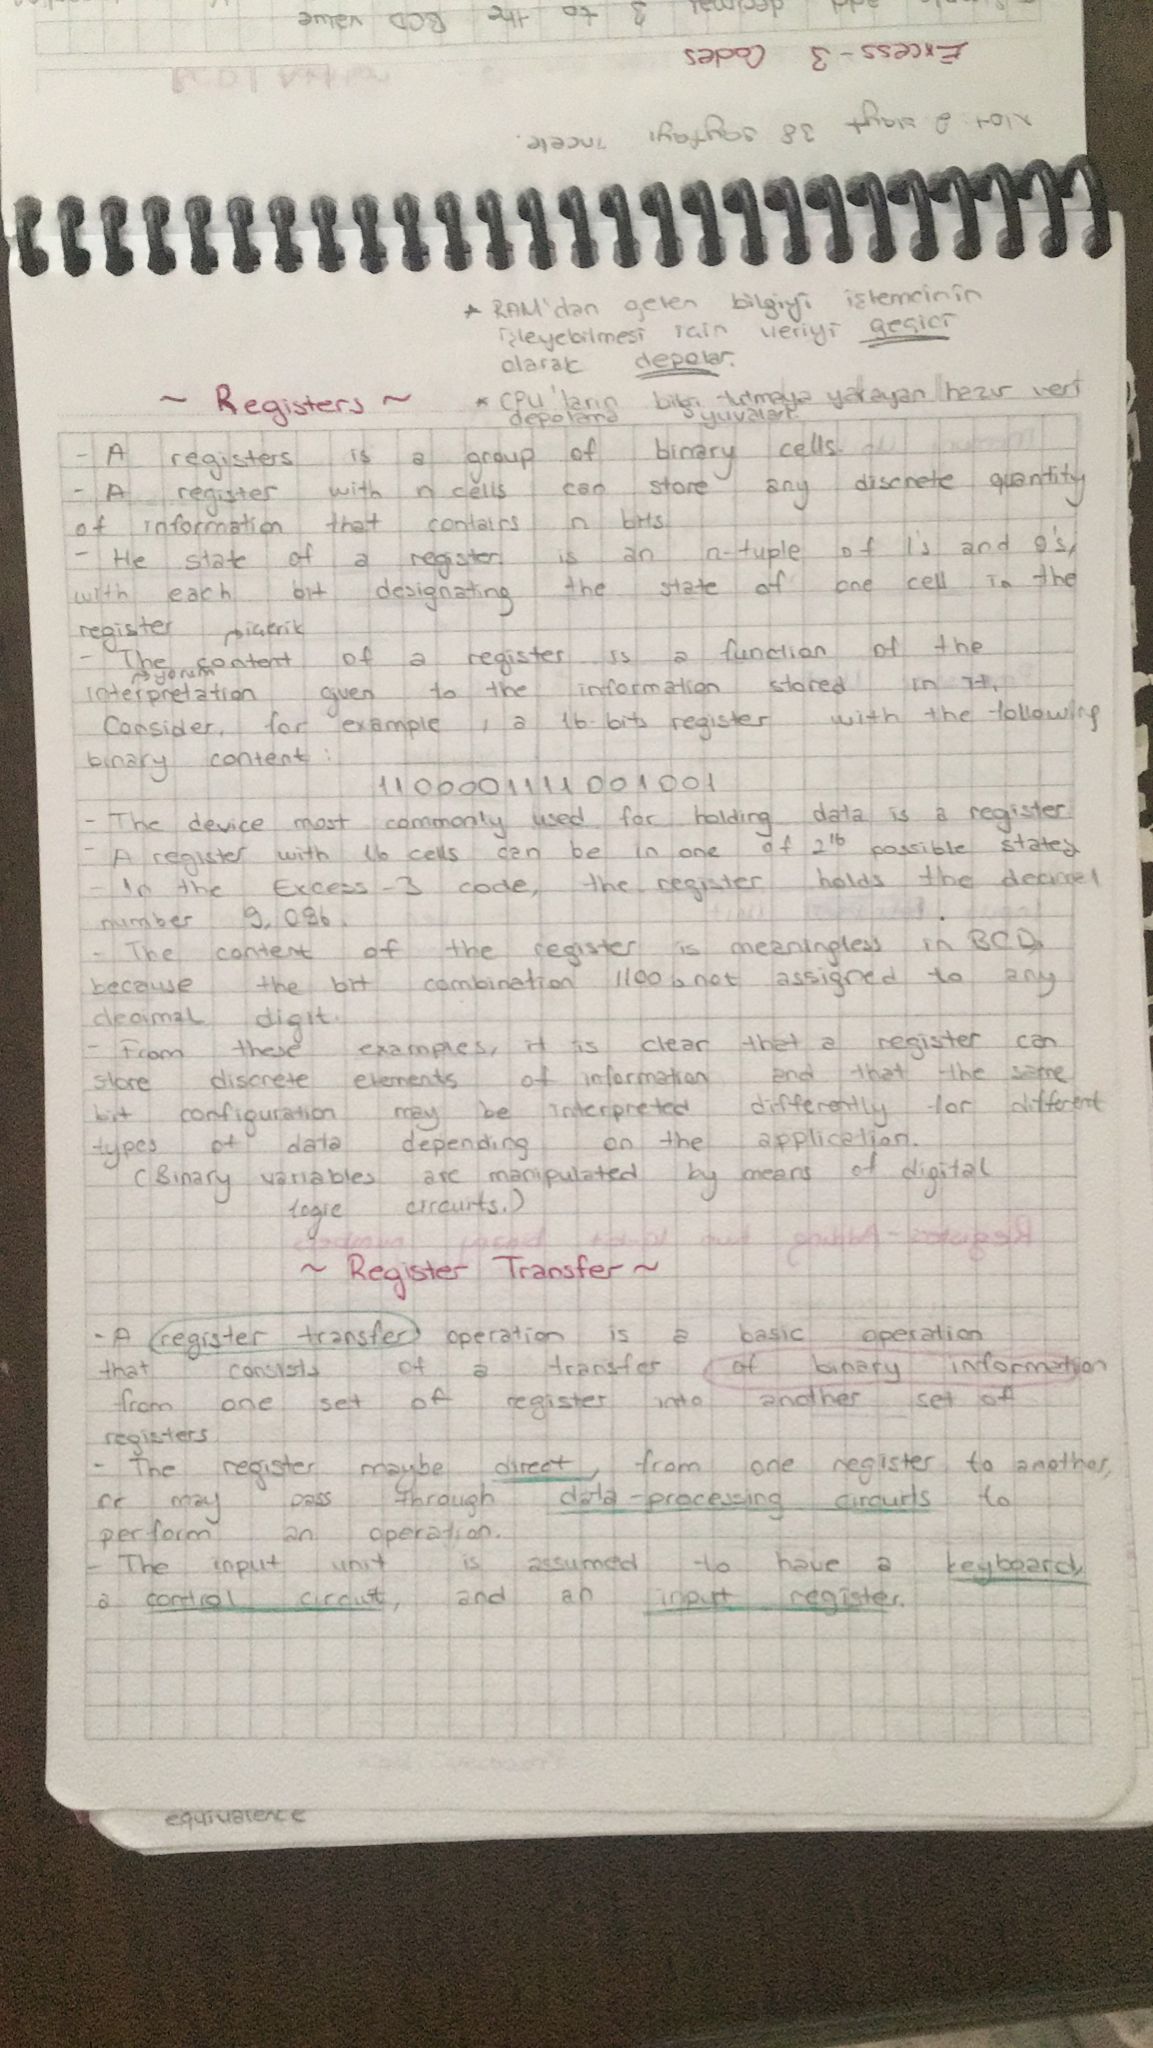 Simple add decimal 3 to the BCD value
Excess-3 Codes
Not: 2 slayt 38 sayfayı incele.
* RAM'dan gelen bilgiyi işlemcinin
işleyebilmesi için veriyi geçici
olarak depolar.
~ Registers ~
* CPU'ların bilgi tutmaya yarayan hazır veri
depolama yuvaları.
- A registers is a group of binary cells.
- A register with n cells can store any discrete quantity
of information that contains n bits
- He state of a register is an n-tuple of 1's and 0's,
with each bit designating the state of one cell in the
register
içerik
- The content of a register is a function of the
yorum
interpretation given to the information stored in it.
Consider, for example, a 16-bits register with the following
binary content:
1100001111001001
- The device most commonly used for holding data is a register
- A register with 16 cells can be in one of 2¹⁶ possible states
- In the Excess-3 code, the register holds the decimal
number 9,096.
- The content of the register is meaningless in BCD,
because the bit combination 1100 is not assigned to any
decimal digit.
- From these examples, it is clear that a register can
store discrete elements of information and that the same
bit configuration may be interpreted differently for different
types of data depending on the application.
(Binary variables are manipulated by means of digital
logic circuits.)
~ Register Transfer ~
- A register transfer operation is a basic operation
that consists of a transfer of binary information
from one set of register into another set of
registers
- The register maybe direct, from one register to another,
or may pass through data-processing circuits to
perform an operation.
- The input unit is assumed to have a keyboard,
a control circuit, and an input register.
equivalence